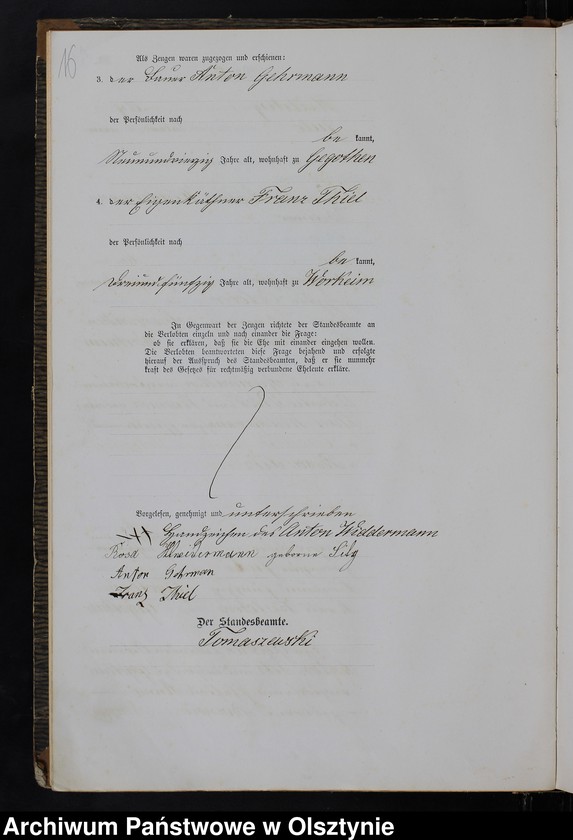 16
Als Zeugen waren zugezogen und erschienen:
3. der Bauer Anton Gehrmann
der Persönlichkeit nach
be kannt,
Neunundvierzig Jahre alt, wohnhaft zu Gegothen
4. der Eigenkäthner Franz Thiel
der Persönlichkeit nach
be kannt,
dreiundfünfzig Jahre alt, wohnhaft zu Workeim
In Gegenwart der Zeugen richtete der Standesbeamte an
die Verlobten einzeln und nach einander die Frage:
ob sie erklären, daß sie die Ehe mit einander eingehen wollen.
Die Verlobten beantworteten diese Frage bejahend und erfolgte
hierauf der Ausspruch des Standesbeamten, daß er sie nunmehr
kraft des Gesetzes für rechtmäßig verbundene Eheleute erkläre.
Vorgelesen, genehmigt und unterschrieben
+++ Handzeichen des Anton Widdermann
Rosa geborne
Anton Gehrman
Franz Thiel
Der Standesbeamte.
Tomaszewski
Archiwum Państwowe w Olsztynie